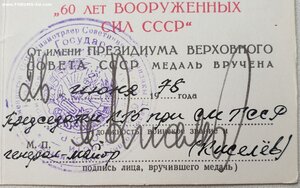 "60 ЛЕТ ВООРУЖЕННЫХ
СИЛ СССР"
От имени ПРЕЗИДИУМА ВЕРХОВНОГО
СОВЕТА СССР МЕДАЛЬ ВРУЧЕНА
26 июня 1978 года
Председатель КГБ при СМ ССР
должность, воинское звание и
М. П. генерал-майор (Киселёв)
подпись лица, вручившего медаль)